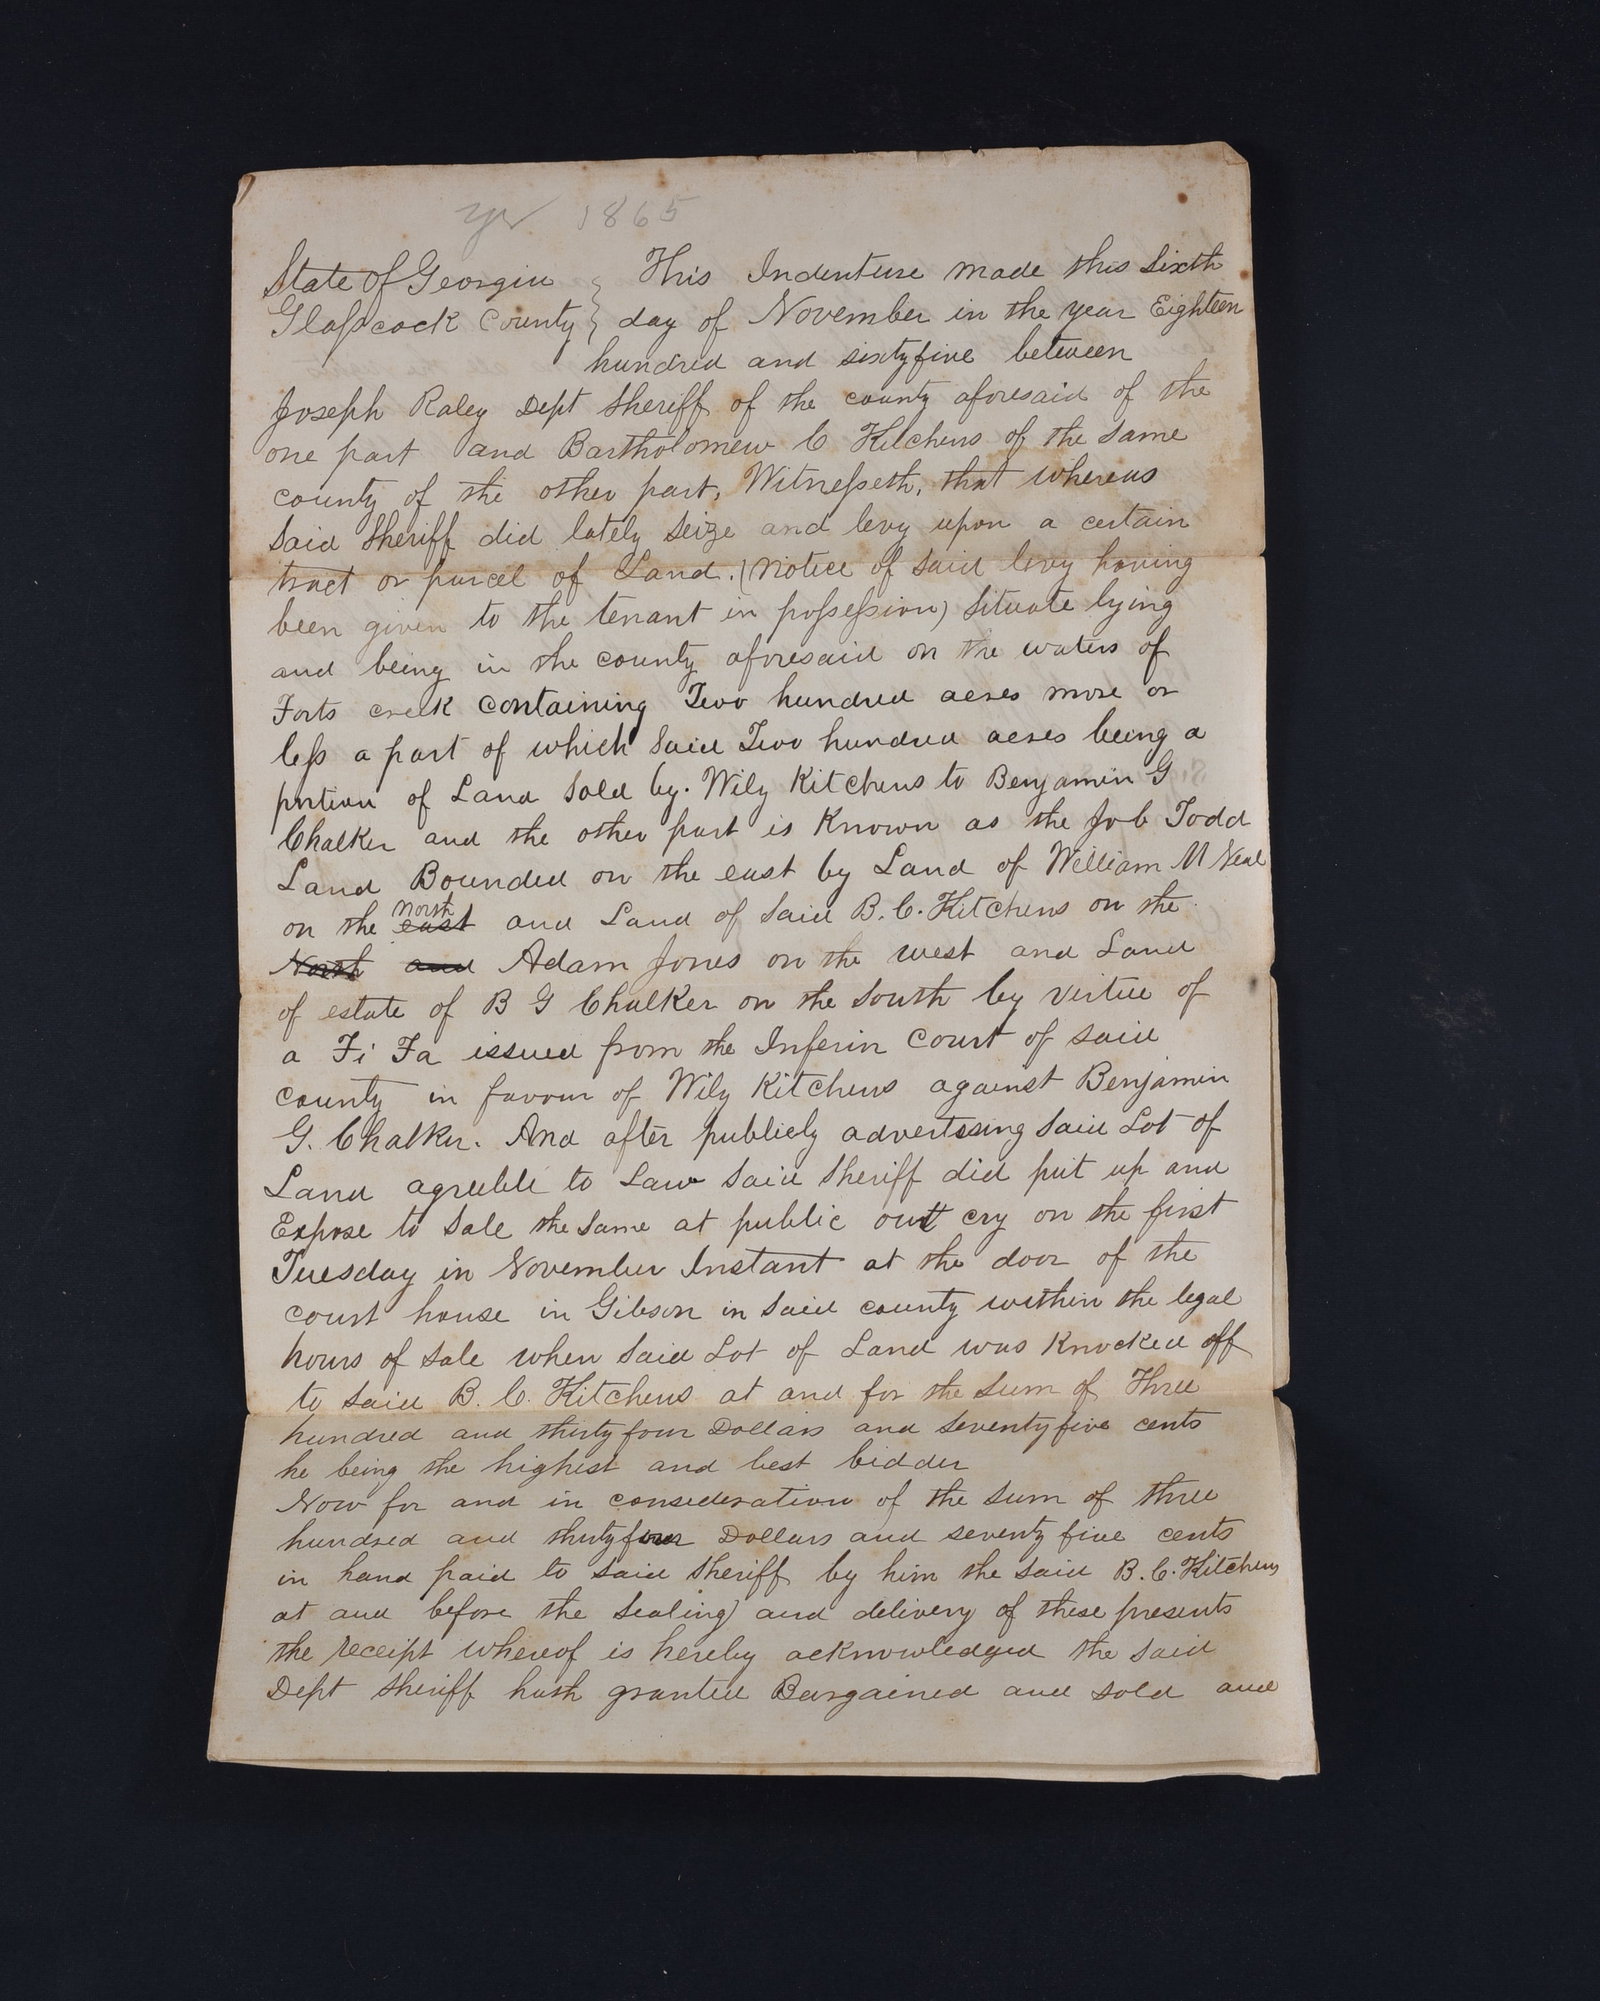 yr 1865
State of Georgia } This Indenture made this Sixth
Glasscock County } day of November in the year Eighteen
hundred and sixtyfive between
Joseph Raley Dept Sheriff of the county aforesaid of the
one part and Bartholomew C Kitchens of the same
county of the other part, Witnesseth, that whereas
Said Sheriff did lately Seize and levy upon a certain
tract or parcel of Land. (Notice of Said levy having
been given to the tenant in possession) Situate lying
and being in the county aforesaid on the waters of
Forts creek containing Two hundred acres more or
less a part of which Said Two hundred acres being a
portion of Land Sold by. Wily Kitchens to Benjamin G
Chalker and the other part is Known as the Job Todd
Land Bounded on the east by Land of William M Neal
on the east North and Land of Said B. C. Kitchens on the
North and Adam Jones on the west and Land
of estate of B G Chalker on the South by virtue of
a Fi Fa issued from the Inferior Court of said
county in favour of Wily Kitchens against Benjamin
G. Chalker. And after publicly advertising Said Lot of
Land agreeble to Law Said Sheriff did put up and
Expose to Sale the Same at public outt cry on the first
Tuesday in November Instant at the door of the
court house in Gibson in Said county within the legal
hours of Sale when Said Lot of Land was Knocked off
to Said B. C. Kitchens at and for the Sum of Three
hundred and thirtyfour Dollars and Seventyfive cents
he being the highest and best bidder
Now for and in consideration of the Sum of three
hundred and thirtyfour Dollars and seventyfive cents
in hand paid to Said Sheriff by him the Said B. C. Kitchens
at and before the Sealing) and delivery of these presents
the receipt whereof is hereby acknowledged the Said
Dept Sheriff hath granted Bargained and Sold and